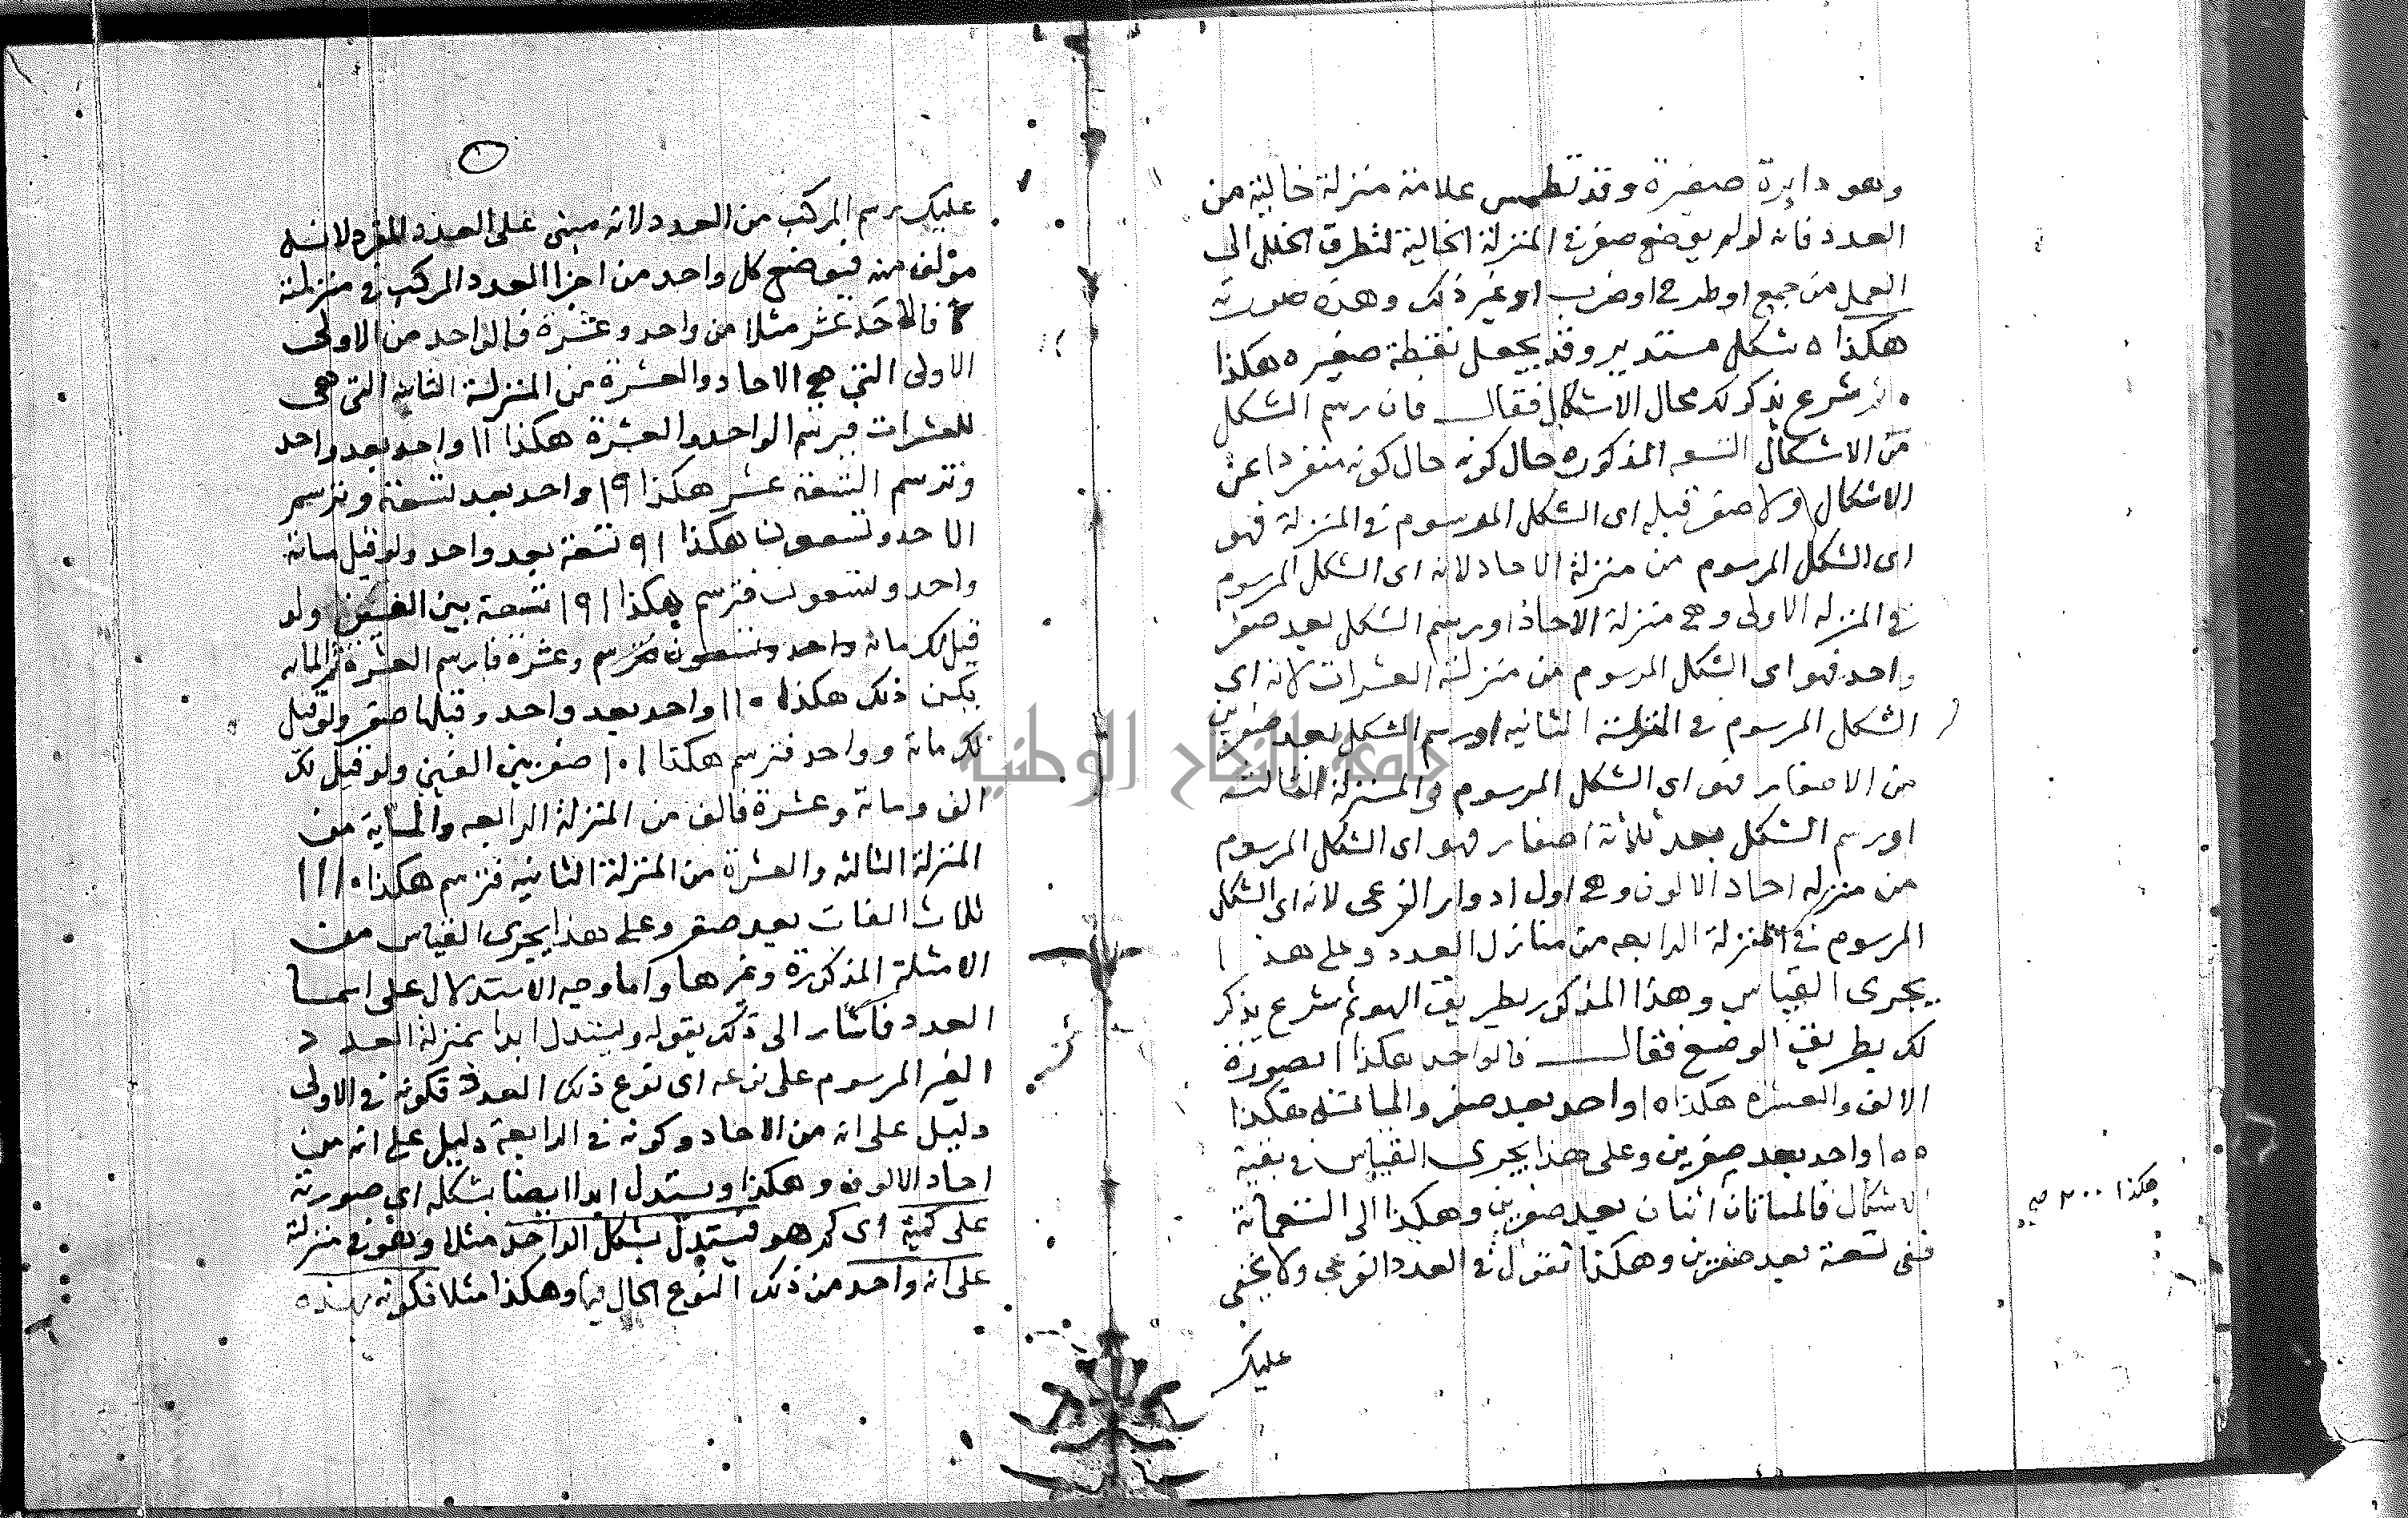 وهو دايرة صغيرة وقد تطمس علامة منزلة خالية من
العدد فانه لو لم يوضع صفر في المنزلة الخالية لتطرق الخلل الى
العمل من جمع او طرح او ضرب او غير ذلك وهذه صورته
هكذا ه شكل مستدير وقد يجعل نقطة صغيره هكذا
٠ ثم شرع يذكر لك محال الاشكال فقال فان رسم الشكل
من الاشكال التسعه المذكوره حال كونه حال كونه منفردا عن
الاشكال ولا صفر قبله اى الشكل المرسوم في المنزلة فهو
اى الشكل المرسوم من منزلة الاحاد لانه اى الشكل المرسوم
في المنزله الاولى وهي منزلة الاحاد او رسم الشكل بعد صفر
واحد فهو اى الشكل المرسوم من منزلة العشرات لانه اى
الشكل المرسوم في المنزلة الثانيه او رسم الشكل بعد صفرين
من الاصفار فهو اى الشكل المرسوم والمنزلة الثالثة
او رسم الشكل بعد ثلاثة اصفار فهو اى الشكل المرسوم
من منزله احاد الالوف وهي اول ادوار الفرعى لانه اى الشكل
المرسوم في المنزلة الرابعه من منازل العدد وعلى هذا
يجرى القياس وهذا المذكور بطريق الهو ثم شرع يذكر
لك بطريق الوضع فقال فالواحد هكذا ا بصورة
الالف والعشره هكذا ١٥ واحد بعد صفر والمائة هكذا
١٥٥ واحد بعد صفرين وعلى هذا يجرى القياس في بقية
الاشكال فالمئاتان اثنان بعد صفرين وهكذا الى التسعمائة
هكذا ٢٠٠ صح
ففى تسعة بعد صفرين وهكذا تقول في العدد الفرعى ولا يخفى
عليك
عليك رسم المركب من العدد لانه مبنى على العدد المفرد لانه
مؤلف منه فيوضع كل واحد من اجزا العدد المركب في منزلته
فالاحد عشر مثلا من واحد وعشرة فالواحد من الاولى
الاولى التى هي الاحاد والعشرة من المنزلة الثانيه التى هى
للعشرات فيرسم الواحد والعشرة هكذا ١١ واحد بعد واحد
وترسم التسعة عشر هكذا ١٩ واحد بعد تسعة وترسم
الاحد وتسعون هكذا ٩١ تسعة بعد واحد ولو قيل مائة
واحد وتسعون فترسم هكذا ١٩١ تسعة بين الفين ولو
قيل لك مائة واحد وتسعون فترسم وعشرة فارسم العشرة ثم المائه
يكن ذلك هكذا ١١٠ واحد بعد واحد وقبلها صفر ولو قيل
لك مائة وواحد فترسم هكذا ١٠١ صفر بين الفين ولو قيل لك
الف ومائة وعشرة فالف من المنزلة الرابعه والمائة من
المنزلة الثالثه والعشرة من المنزلة الثانيه فترسم هكذا ١١١٠
ثلاث الفات بعد صفر وعلى هذا يجرى القياس من
الامثلة المذكورة وغيرها واما وجه الاستدلال على اسما
العدد فاشار الى ذلك بقوله ويستدل ابدا بمنزلة العدد
الغير المرسوم على نوعه اى نوع ذلك العدد فكونه في الاولى
دليل على انه من الاحاد وكونه في الرابعة دليل على انه من
احاد الالوف وهكذا ويستدل ابدا ايضا بشكله اى صورته
على كميته اى كم هو فيستدل بشكل الواحد مثلا وهو في منزلة
على انه واحد من ذلك النوع الحال فيها وهكذا مثلا فكونه بهذه
جامعة النجاح الوطنية